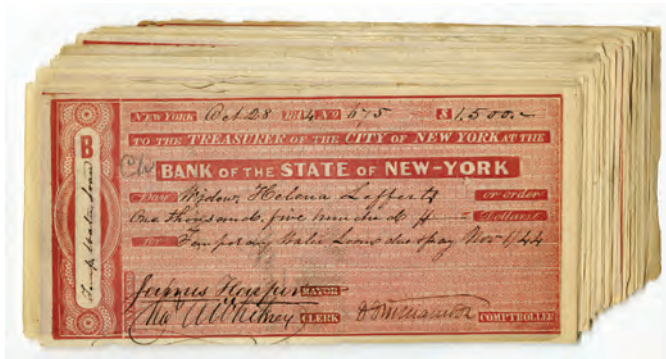 NEW YORK Oct 28 1844 No 675 $1,500.-
TO THE TREASURER OF THE CITY OF NEW YORK AT THE
BANK OF THE STATE OF NEW-YORK
Pay Widow Helena Lefferts or order
One thousand, five hundred Dollars
for Temporary Water Loan due & pay Nov 1/44
B
Temp Water Loan
James Harper MAYOR
Whitney CLERK COMPTROLLER